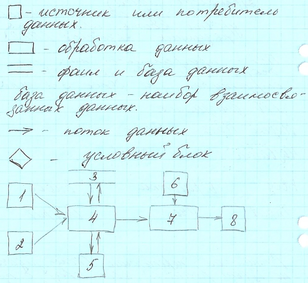 - источник или потребитель
данных.
- обработка данных
- файл и база данных
база данных - набор взаимосвя-
занных данных.
- поток данных
- условный блок
3
6
1
4
7
8
2
5